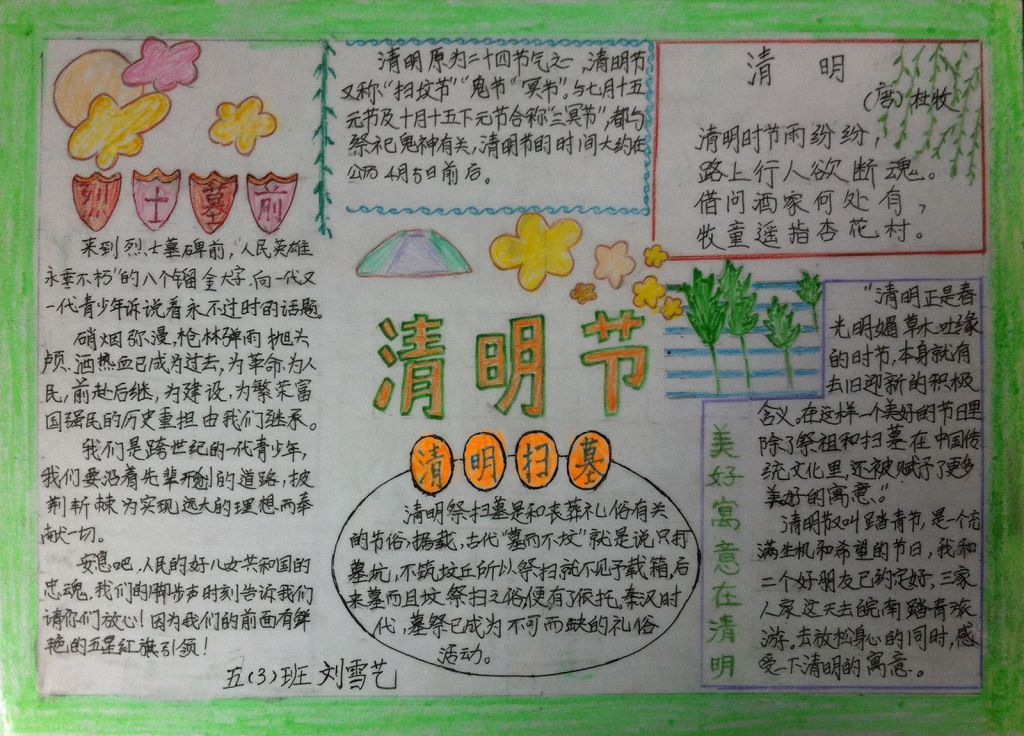 烈士墓前
来到烈士墓碑前,“人民英雄
永垂不朽”的八个镏金大字.向一代又
一代青少年诉说着永不过时的话题。
硝烟弥漫,枪林弹雨抛头
颅.洒热血已成为过去,为革命,为人
民,前赴后继,为建设,为繁荣富
国强民的历史重担由我们继承。
我们是跨世纪的一代青少年,
我们要沿着先辈开创的道路,披
荆斩棘为实现远大的理想而奉
献一切。
安息吧,人民的好儿女共和国的
忠魂,我们的脚步声时刻告诉我们
请你们放心!因为我们的前面有鲜
艳的五星红旗引领!
五(3)班 刘雪艺
清明原为二十四节气之一,清明节
又称“扫坟节”“鬼节”“冥节”,与七月十五
元节及十月十五下元节合称“三冥节”,都与
祭祀鬼神有关,清明节的时间大约在
公历4月5日前后。
清明
(唐)杜牧
清明时节雨纷纷,
路上行人欲断魂。
借问酒家何处有,
牧童遥指杏花村。
清明节
清明扫墓
清明祭扫墓是和丧葬礼俗有关
的节俗,据载,古代“墓而不坟”就是说只打
墓坑,不筑坟丘所以祭扫就不见于载箱,后
来墓而且坟祭扫之俗,便有了依托,秦汉时
代,墓祭已成为不可而缺的礼俗
活动。
美好寓意在清明
“清明正是春
光明媚草木吐绿
的时节,本身就有
去旧迎新的积极
含义。在这样一个美好的节日里
除了祭祖和扫墓在中国传
统文化里,还被赋予了更多
美好的寓意。”
清明节又叫踏青节,是一个充
满生机和希望的节日,我和
二个好朋友已约定好,三家
人家这天去皖南踏青旅
游。去放松身心的同时,感
受一下清明的寓意。